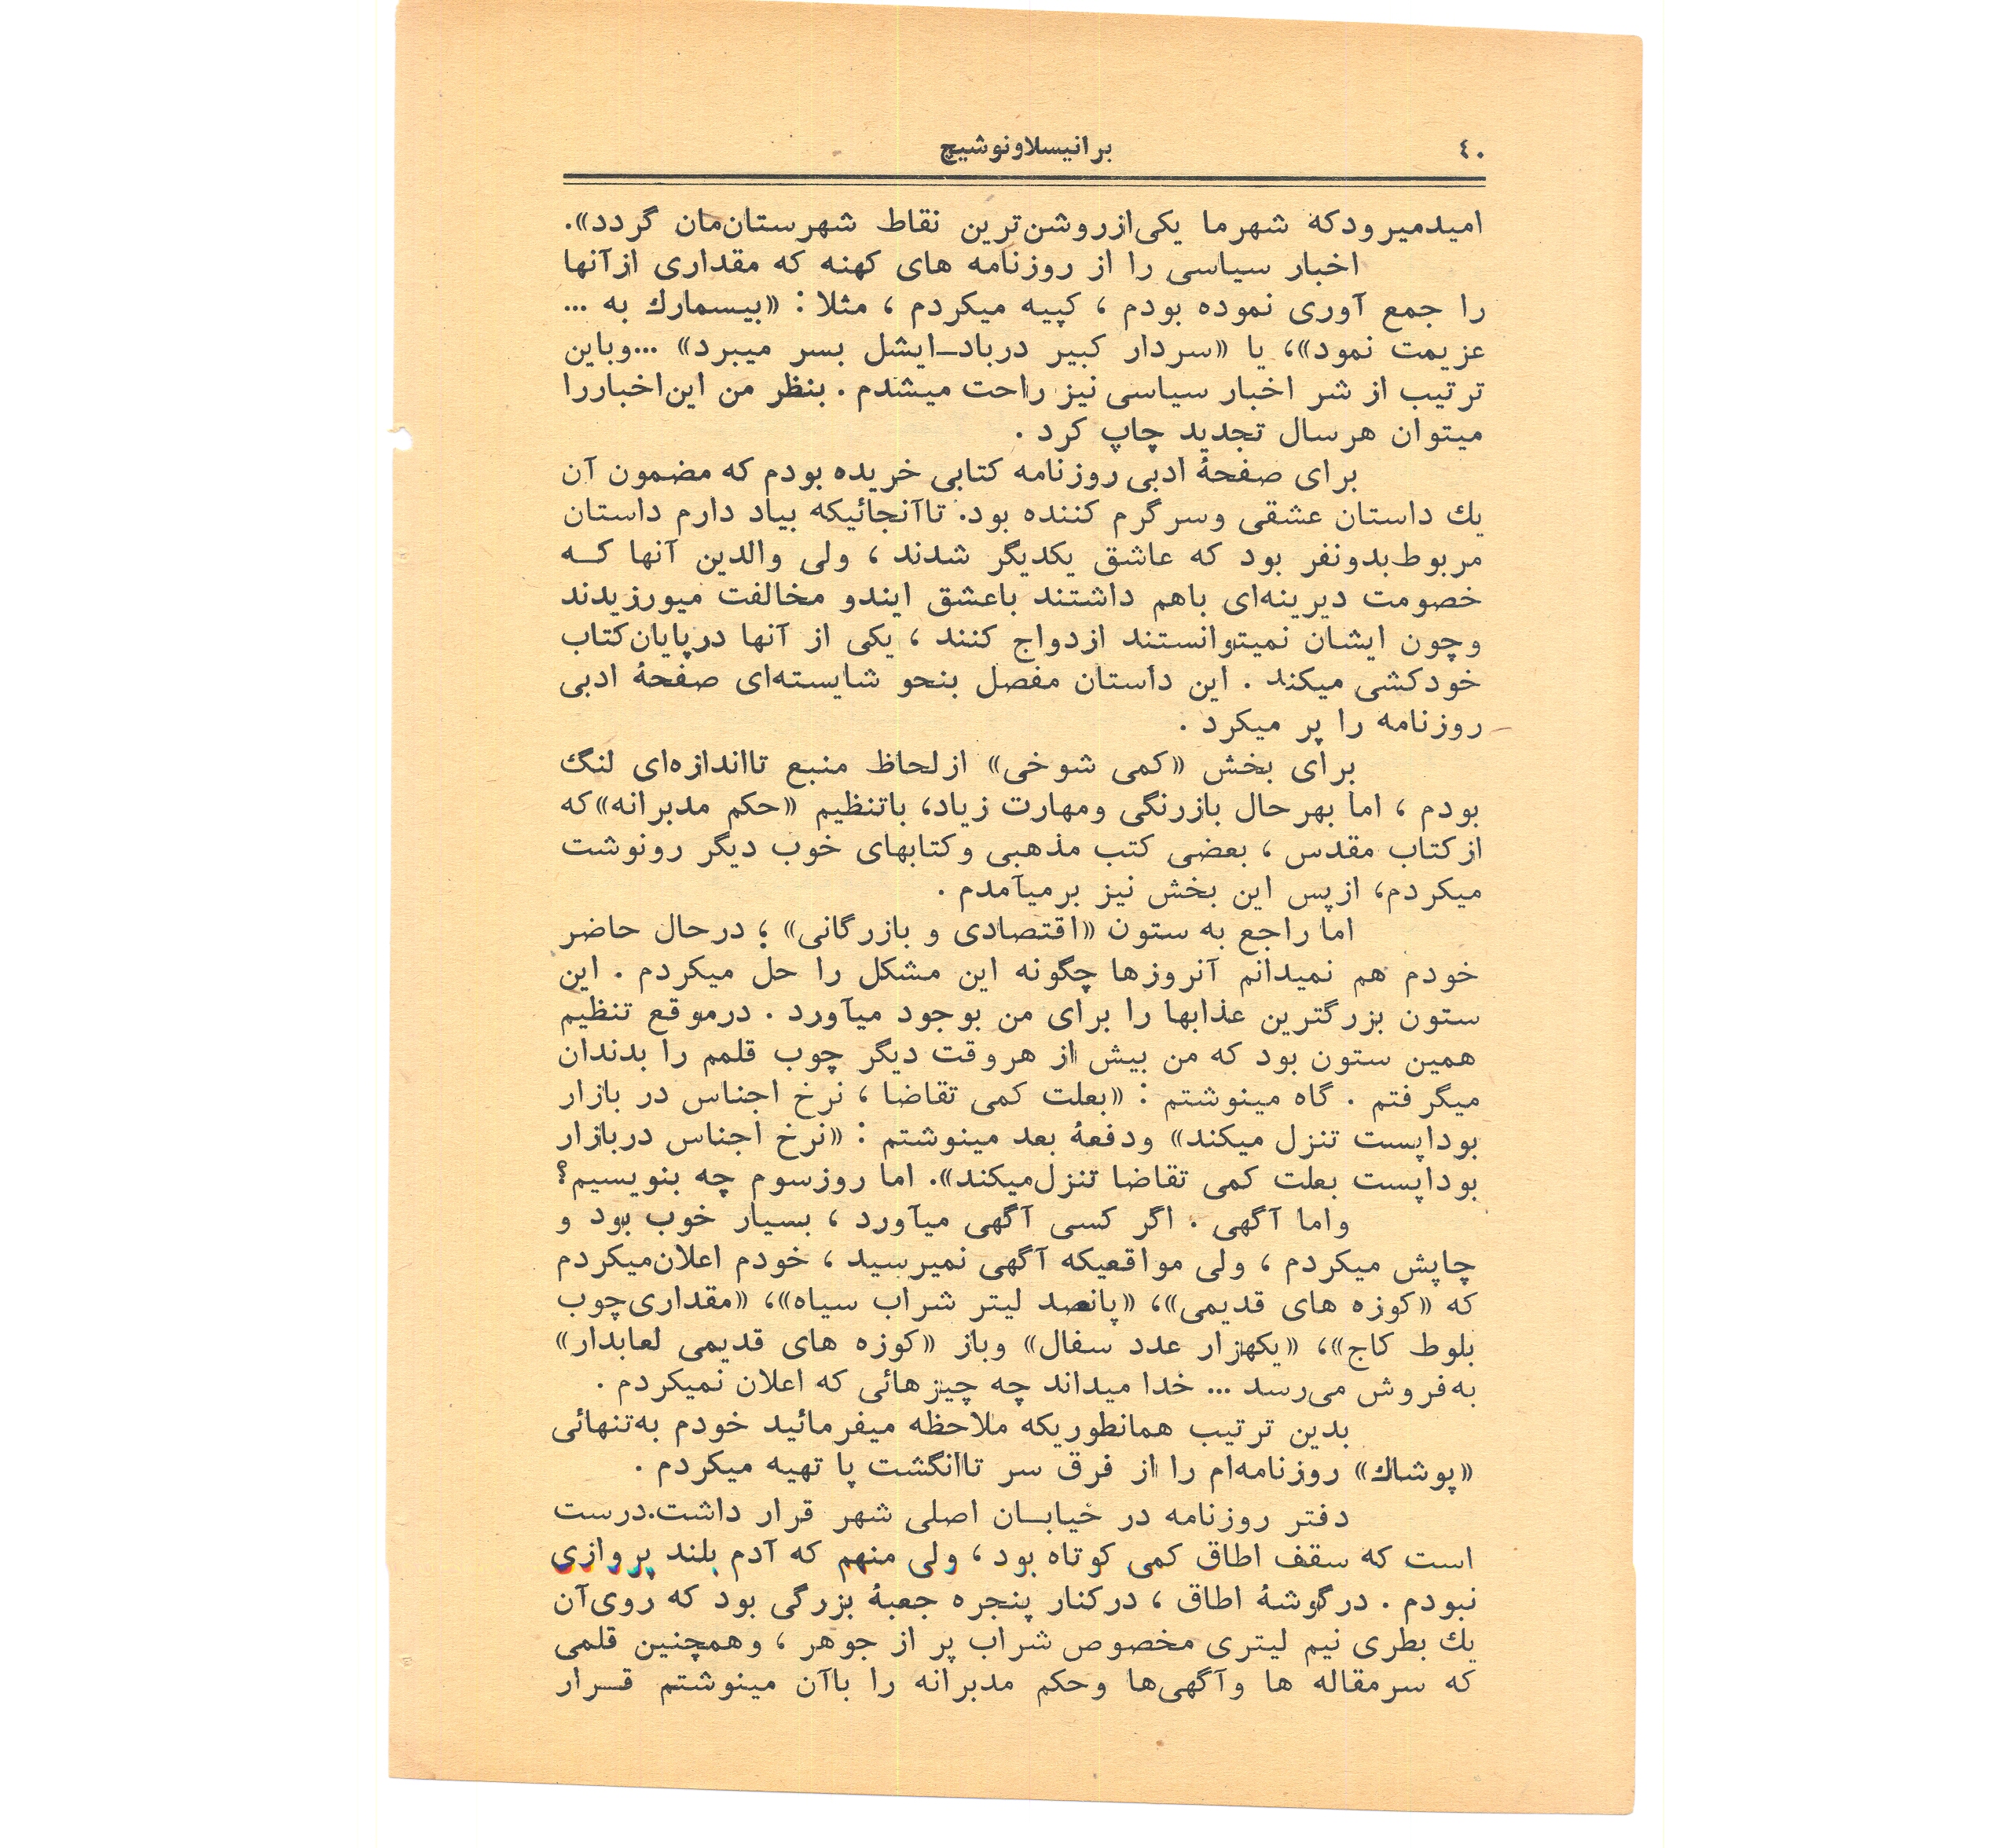 ۴۰
برانیسلاونوشیچ
امیدمیرودکه شهرما یکی‌ازروشن‌ترین نقاط شهرستان‌مان گردد».
اخبار سیاسی را از روزنامه های کهنه که مقداری ازآنها
را جمع آوری نموده بودم ، کپیه میکردم ، مثلا : «بیسمارك به ...
عزیمت نمود»، یا «سردار کبیر درباد_ایشل بسر میبرد» ...وباین
ترتیب از شر اخبار سیاسی نیز راحت میشدم . بنظر من این‌اخباررا
میتوان هرسال تجدید چاپ کرد .
برای صفحهٔ ادبی روزنامه کتابی خریده بودم که مضمون آن
یك داستان عشقی وسرگرم کننده بود. تاآنجائیکه بیاد دارم داستان
مربوط‌بدونفر بود که عاشق یکدیگر شدند ، ولی والدین آنها کــه
خصومت دیرینه‌ای باهم داشتند باعشق ایندو مخالفت میورزیدند
وچون ایشان نمیتوانستند ازدواج کنند ، یکی از آنها درپایان‌کتاب
خودکشی میکند . این داستان مفصل بنحو شایسته‌ای صفحهٔ ادبی
روزنامه را پر میکرد .
برای بخش «کمی شوخی» ازلحاظ منبع تااندازه‌ای لنگ
بودم ، اما بهرحال بازرنگی ومهارت زیاد، باتنظیم «حکم مدبرانه»که
ازکتاب مقدس ، بعضی کتب مذهبی وکتابهای خوب دیگر رونوشت
میکردم، ازپس این بخش نیز برمیآمدم .
اما راجع به ستون «اقتصادی و بازرگانی» ؛ درحال حاضر
خودم هم نمیدانم آنروزها چگونه این مشکل را حل میکردم . این
ستون بزرگترین عذابها را برای من بوجود میآورد . درموقع تنظیم
همین ستون بود که من بیش از هروقت دیگر چوب قلمم را بدندان
میگرفتم . گاه مینوشتم : «بعلت کمی تقاضا ، نرخ اجناس در بازار
بوداپست تنزل میکند» ودفعهٔ بعد مینوشتم : «نرخ اجناس دربازار
بوداپست بعلت کمی تقاضا تنزل‌میکند». اما روزسوم چه بنویسیم؟
واما آگهی . اگر کسی آگهی میآورد ، بسیار خوب بود و
چاپش میکردم ، ولی مواقعیکه آگهی نمیرسید ، خودم اعلان‌میکردم
که «کوزه های قدیمی»، «پانصد لیتر شراب سیاه»، «مقداری‌چوب
بلوط کاج»، «یکهزار عدد سفال» وباز «کوزه های قدیمی لعابدار»
به‌فروش می‌رسد ... خدا میداند چه چیزهائی که اعلان نمیکردم .
بدین ترتیب همانطوریکه ملاحظه میفرمائید خودم به‌تنهائی
«پوشاك» روزنامه‌ام را از فرق سر تاانگشت پا تهیه میکردم .
دفتر روزنامه در خیابــان اصلی شهر قرار داشت.درست
است که سقف اطاق کمی کوتاه بود ، ولی منهم که آدم بلند پروازی
نبودم . درگوشهٔ اطاق ، درکنار پنجره جعبهٔ بزرگی بود که روی‌آن
یك بطری نیم لیتری مخصوص شراب پر از جوهر ، وهمچنین قلمی
که سرمقاله ها وآگهی‌ها وحکم مدبرانه را باآن مینوشتم قــرار